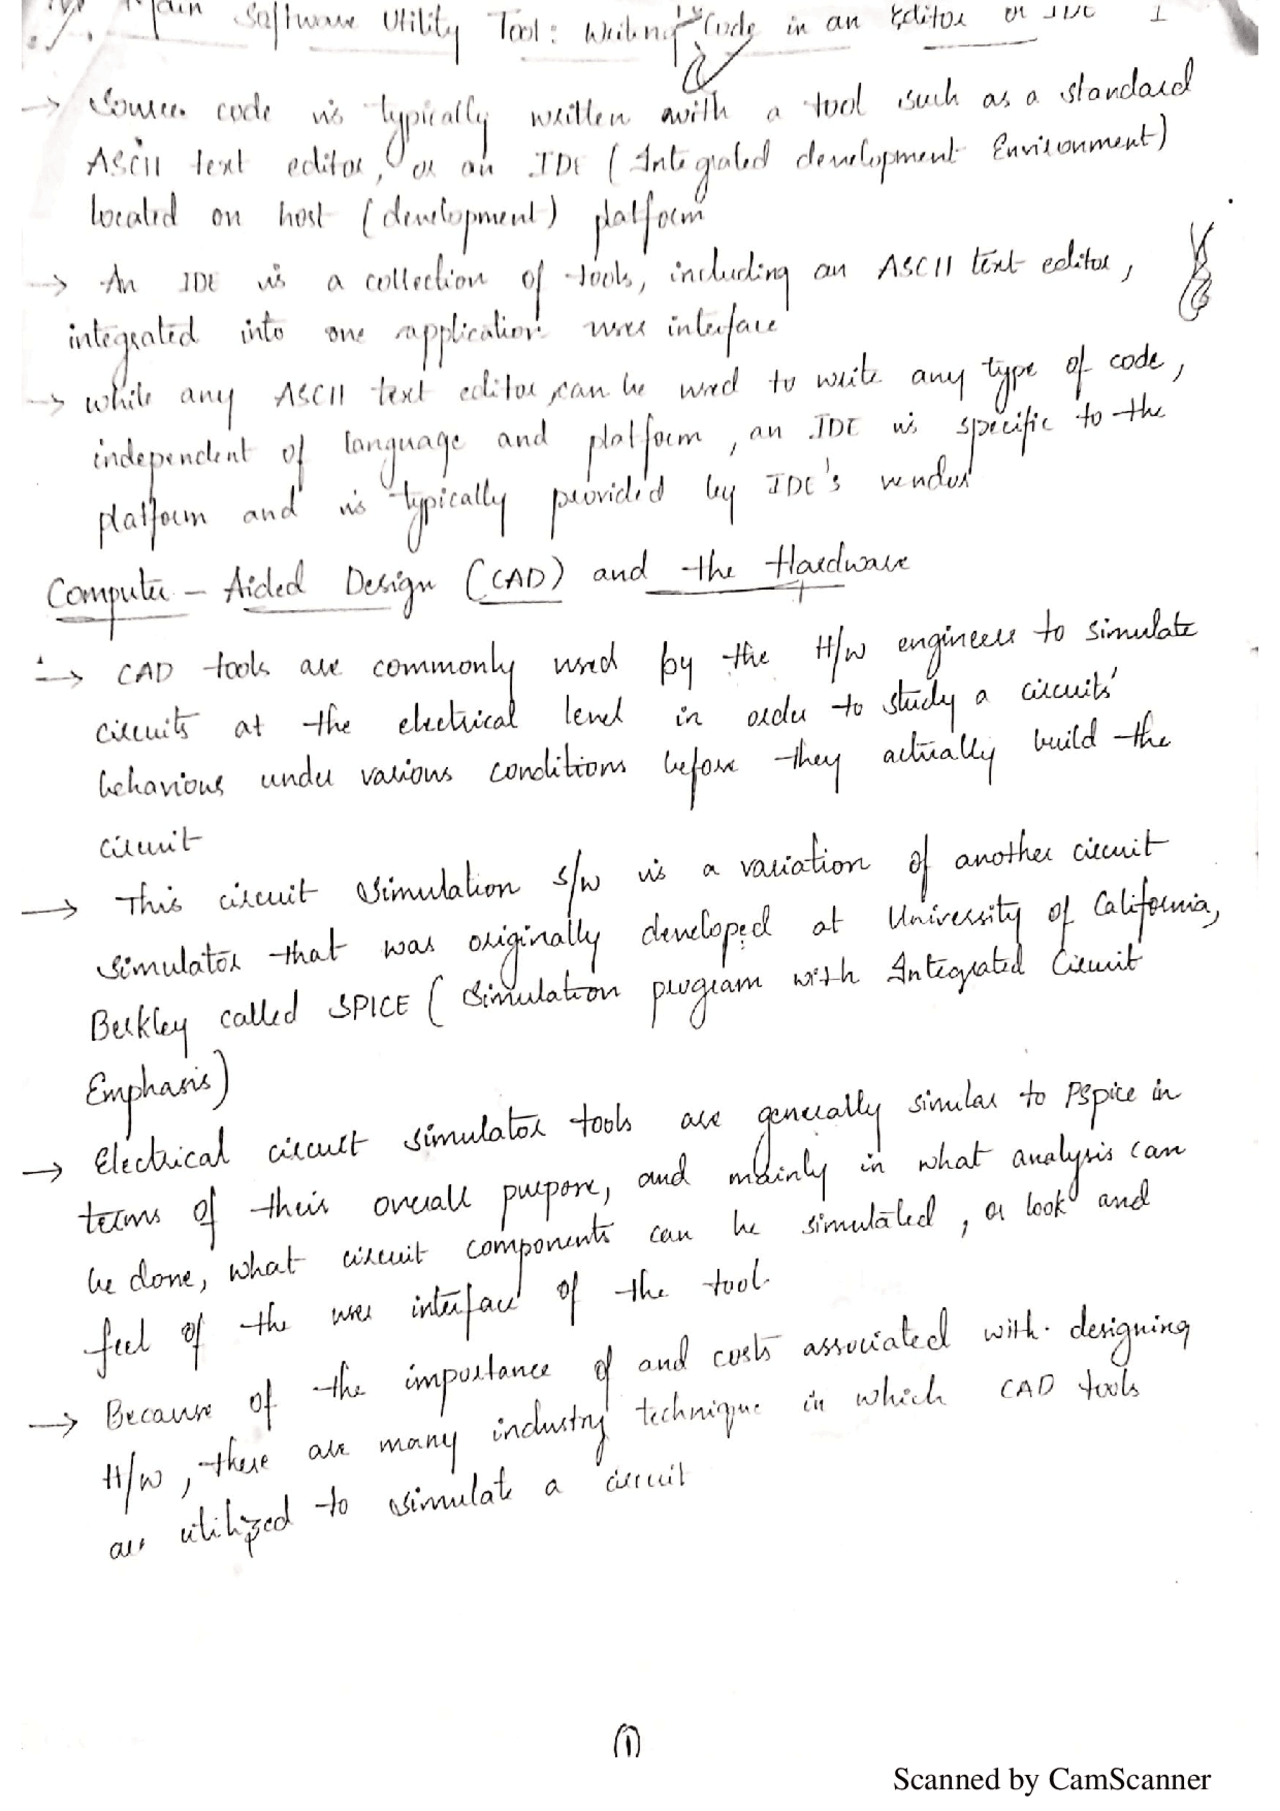 Main Software Utility Tool: Writing Code in an Editor or IDE
→ Source code is typically written with a tool such as a standard
ASCII text editor, or an IDE (Integrated development Environment)
located on host (development) platform
→ An IDE is a collection of tools, including an ASCII text editor,
integrated into one application user interface
→ while any ASCII text editor can be used to write any type of code,
independent of language and platform, an IDE is specific to the
platform and is typically provided by IDE's vendor
Computer - Aided Design (CAD) and the Hardware
→ CAD tools are commonly used by the H/W engineers to simulate
circuits at the electrical level in order to study a circuits'
behavious under various conditions before they actually build the
circuit
→ This circuit simulation S/W is a variation of another circuit
simulator that was originally developed at University of California,
Berkley called SPICE (Simulation program with Integrated Circuit
Emphasis)
→ Electrical circuit simulator tools are generally similar to PSpice in
terms of their overall purpose, and mainly in what analysis can
be done, what circuit components can be simulated, or look and
feel of the user interface of the tool.
→ Because of the importance of and costs associated with designing
H/W, there are many industry technique in which CAD tools
are utilized to simulate a circuit
1
Scanned by CamScanner